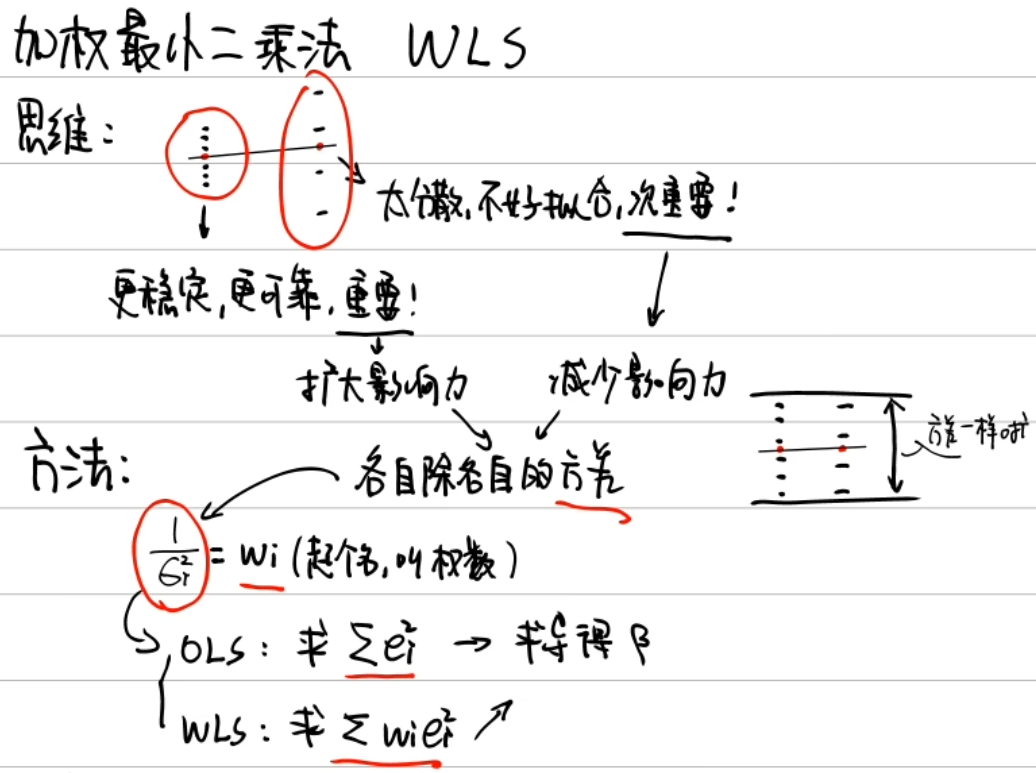 加权最小二乘法 WLS
思维:
太分散,不好拟合,次重要!
更稳定,更可靠,重要!
扩大影响力 减少影响力
方差一样时
方法: 各自除各自的方差
1/6i² = wi (起个名,叫权数)
OLS: 求 Σei² → 求导得 β
WLS: 求 Σwiei² ↗